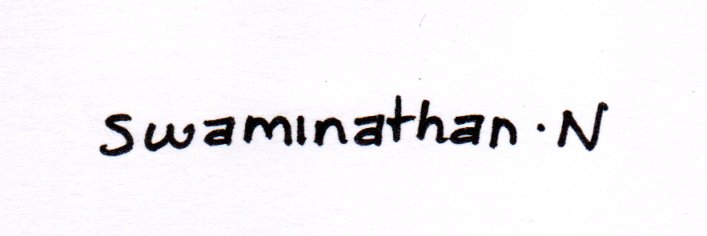 Swaminathan. N